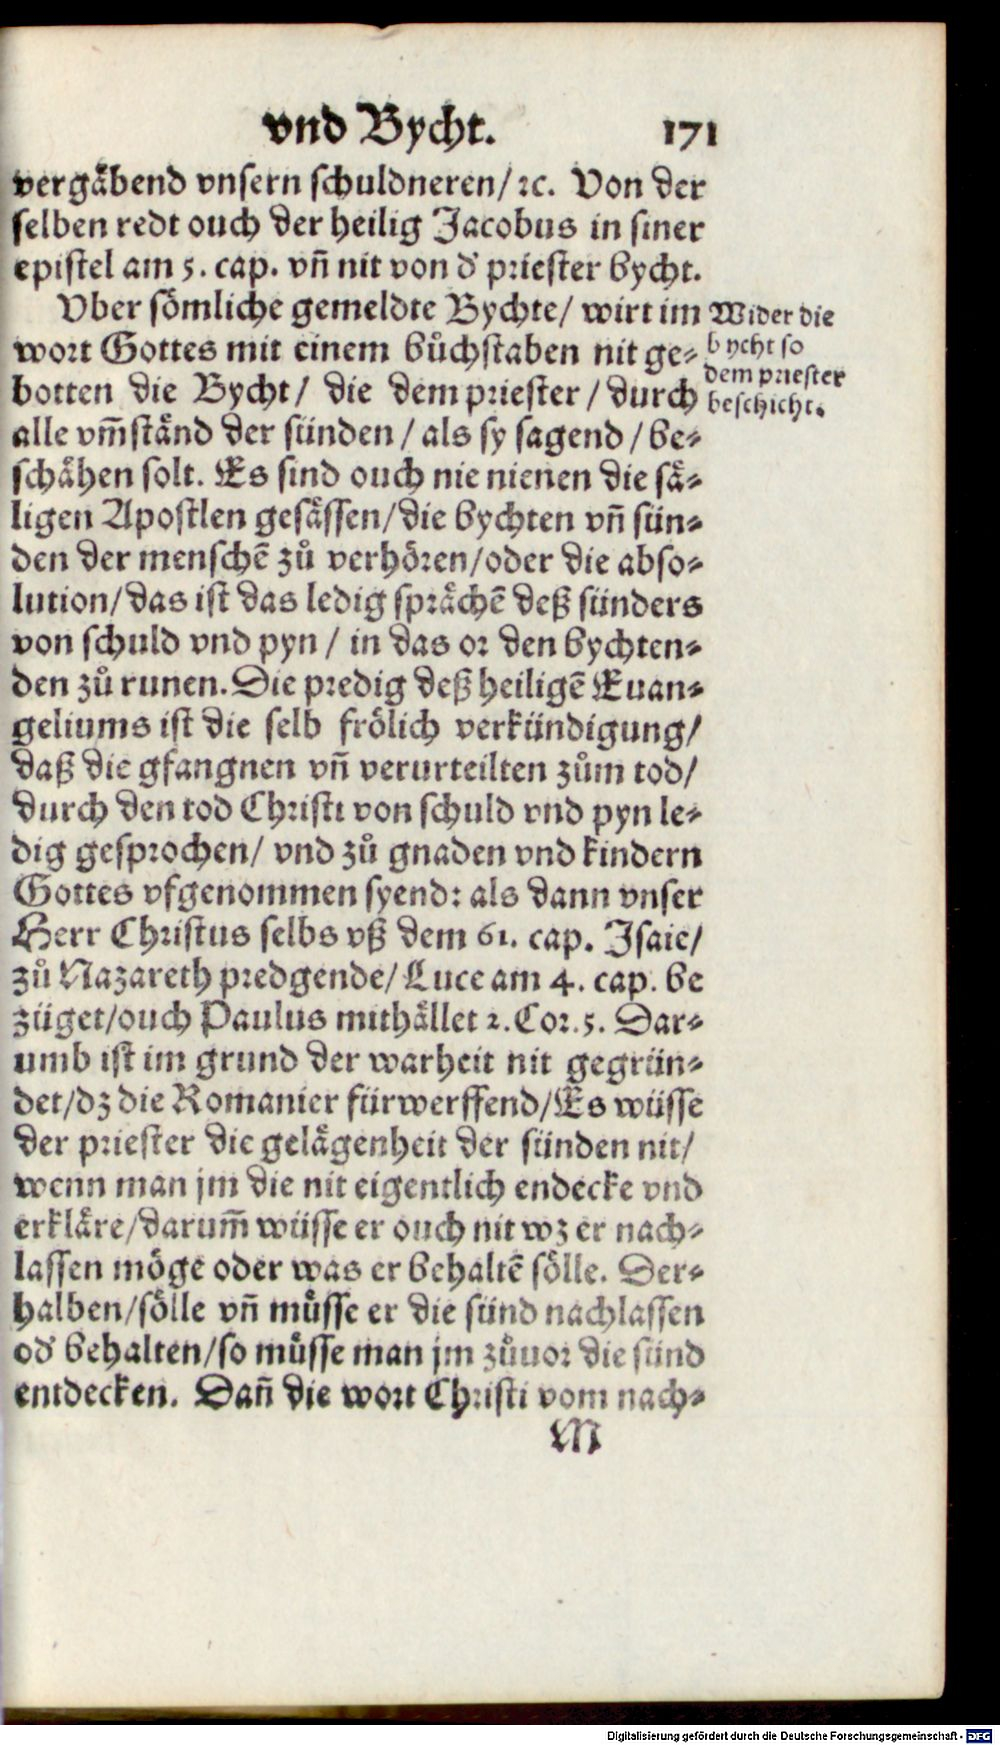 vnd Bycht. 171
vergäbend vnsern schuldneren/ꝛc. Von der
selben redt ouch der heilig Jacobus in siner
epistel am 5. cap. vn̄ nit von d' priester bycht.
Vber sömliche gemeldte Bychte/ wirt im
wort Gottes mit einem bůchstaben nit ge-
botten die Bycht/ die dem priester/ durch
alle vm̄ständ der sünden/ als sy sagend/ be-
schähen solt. Es sind ouch nie nienen die sä-
ligen Apostlen gesässen/die bychten vn̄ sün-
den der menschē zů verhören/oder die abso-
lution/das ist das ledig sprächē deß sünders
von schuld vnd pyn/ in das or den bychten-
den zů runen. Die predig deß heiligē Euan-
geliums ist die selb frölich verkündigung/
daß die gfangnen vn̄ verurteilten zům tod/
durch den tod Christi von schuld vnd pyn le-
dig gesprochen/ vnd zů gnaden vnd kindern
Gottes vfgenommen syend: als dann vnser
Herr Christus selbs vß dem 61. cap. Isaie/
zů Nazareth predgende/ Luce am 4. cap. be
züget/ouch Paulus mithället 2. Cor. 5. Dar-
umb ist im grund der warheit nit gegrün-
det/dz die Romanier fürwerffend/Es wüsse
der priester die gelägenheit der sünden nit/
wenn man jm die nit eigentlich endecke vnd
erkläre/darum̄ wüsse er ouch nit wz er nach-
lassen möge oder was er behaltē sölle. Der-
halben/sölle vn̄ müsse er die sünd nachlassen
od' behalten/so müsse man jm zůuor die sünd
entdecken. Dan̄ die wort Christi vom nach-
M
Wider die
bycht so
dem priester
beschicht.
Digitalisierung gefördert durch die Deutsche Forschungsgemeinschaft - DFG